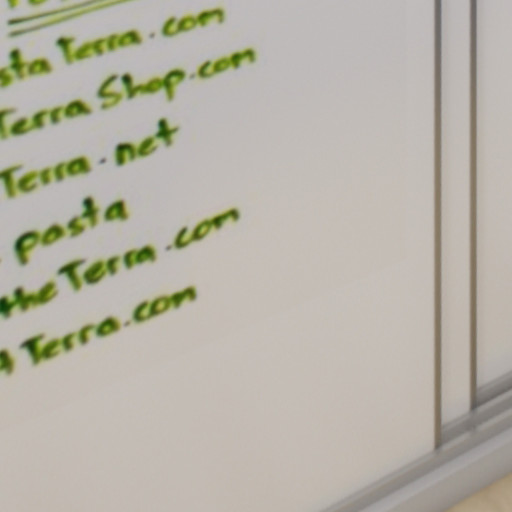 Terra.com
TerraShop.com
Terra.net
pasta
theTerra.com
Terra.com